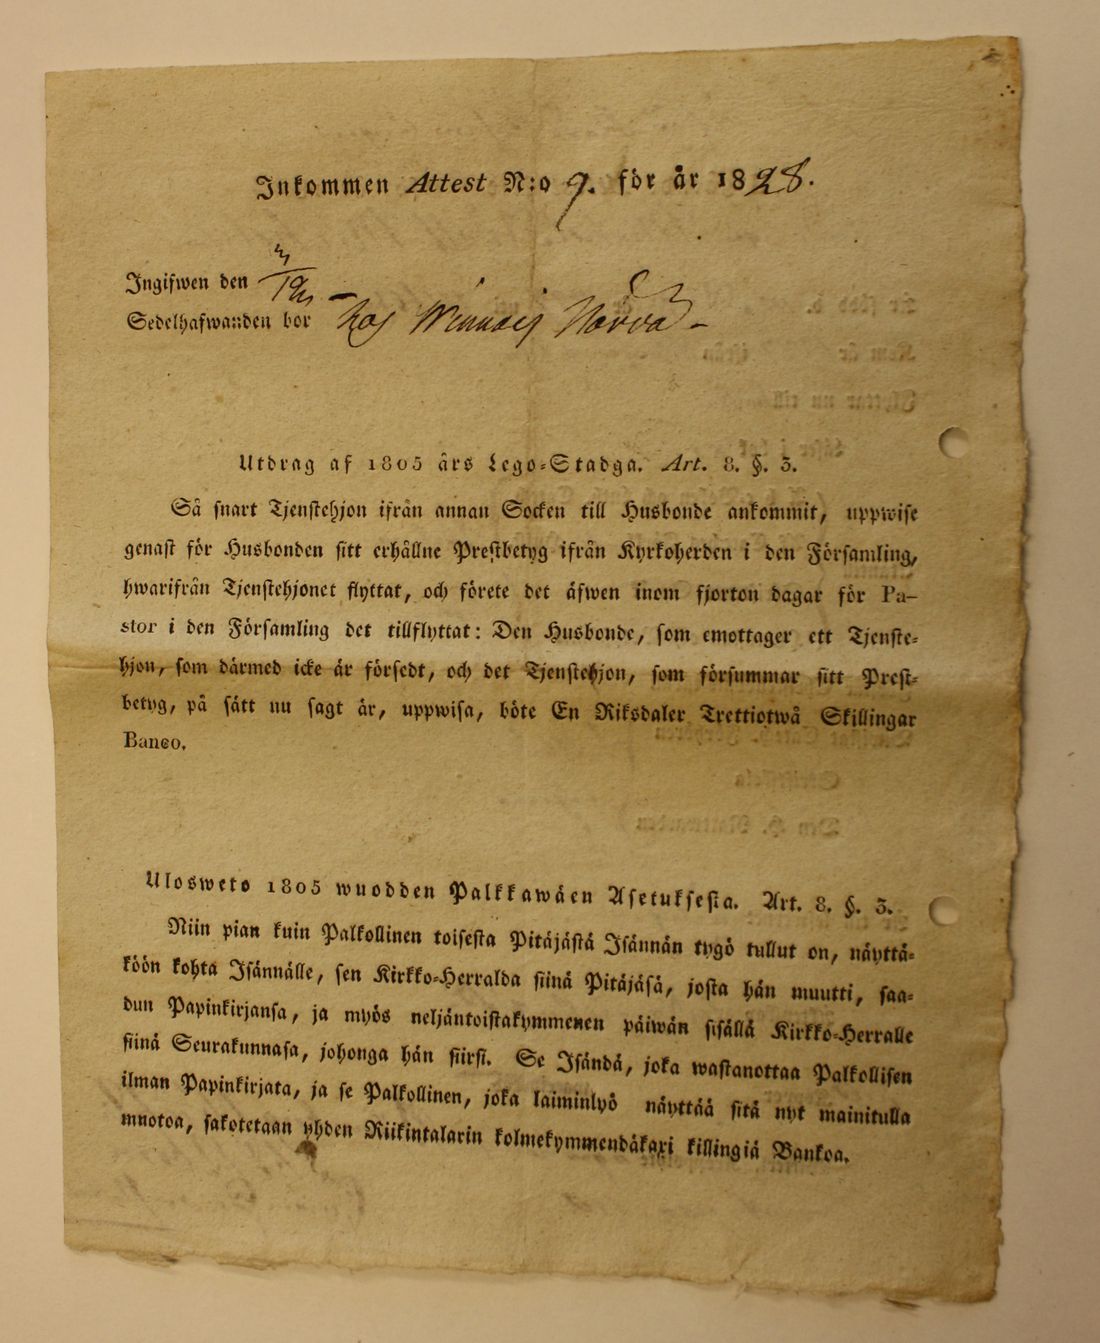 Inkommen Attest N:o 9. för år 1828.
Ingifwen den
Sedelhafwanden bor hos
Utdrag af 1805 års Lego-Stadga. Art. 8. §. 3.
Så snart Tjenstehjon ifrån annan Socken till Husbonde ankommit, uppwise
genast för Husbonden sitt erhållne Prestbetyg ifrån Kyrkoherden i den Församling,
hwarifrån Tjenstehjonet flyttat, och förete det äfwen inom fjorton dagar för Pa-
stor i den Församling det tillflyttat: Den Husbonde, som emottager ett Tjenste-
hjon, som därmed icke är försedt, och det Tjenstehjon, som försummar sitt Prest-
betyg, på sätt nu sagt är, uppwisa, böte En Riksdaler Trettiotwå Skillingar
Banco.
Ulosweto 1805 wuodden Palkkawäen Asetuksesta. Art. 8. §. 3.
Niin pian kuin Palkollinen toisesta Pitäjästä Isännän tygö tullut on, näyttä-
köön kohta Isännälle, sen Kirkko-Herralda siinä Pitäjäsä, josta hän muutti, saa-
dun Papinkirjansa, ja myös neljäntoistakymmenen päiwän sisällä Kirkko-Herralle
siinä Seurakunnasa, johonga hän siirsi. Se Isändä, joka wastanottaa Palkollisen
ilman Papinkirjata, ja se Palkollinen, joka laiminlyö näyttää sitä nyt mainitulla
muotoa, sakotetaan yhden Riikintalarin kolmekymmendäkaxi killingiä Bankoa.